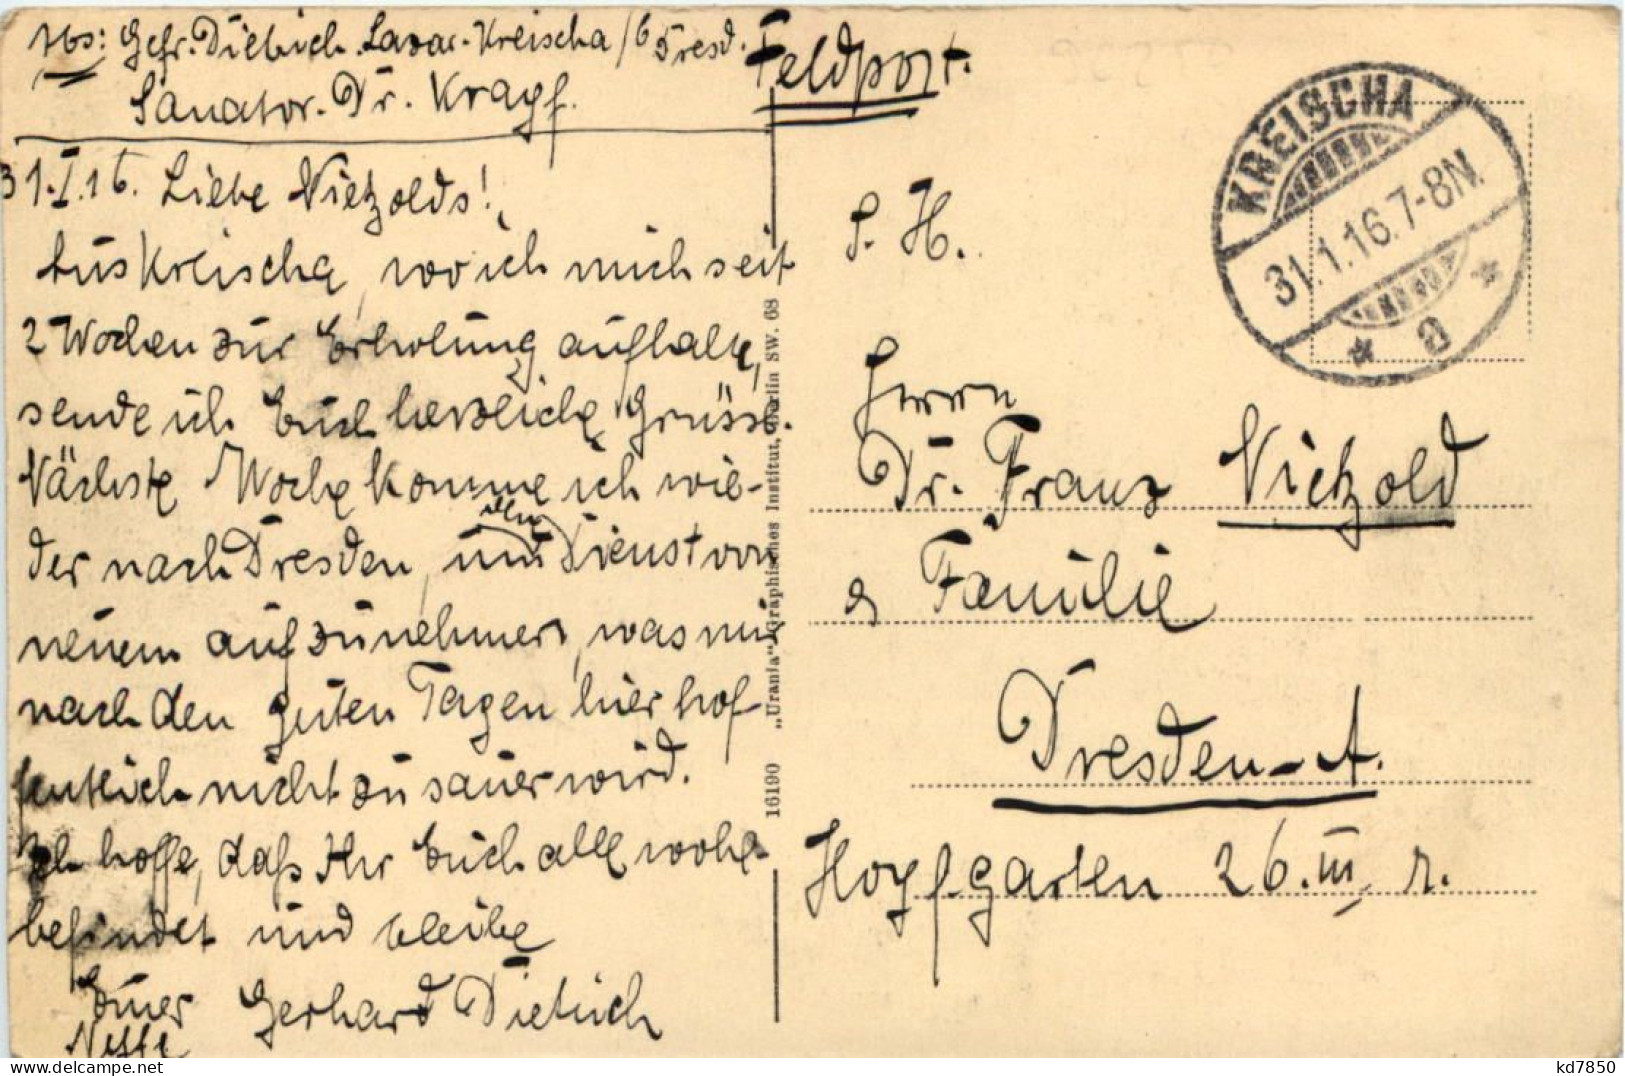 Abs: Gefr. Dietrich. Lazar. Kreischa/b Dresd.
Sanator. Dr. Krapf.
Feldpost.
31.I.16. Liebe Nietzolds!
Aus Kreischa, wo ich mich seit
2 Wochen zur Erholung aufhalte,
sende ich Euch herzliche Grüsse.
Nächste Woche komme ich wie-
der nach Dresden, um den Dienst von
neuem aufzunehmen, was mir
nach den guten Tagen hier hof-
fentlich nicht zu sauer wird.
Ich hoffe, daß Ihr Euch alle wohl-
befindet und bleibe
Euer Gerhard Dietrich
Neffe
16190 „Urania“ Graphisches Institut, Berlin SW. 68
KREISCHA
31.1.16.7-8N.
* a *
S. H.
Herrn
Dr. Franz Nietzold
& Familie
Dresden-A.
Hopfgarten 26.III, r.
kd7850